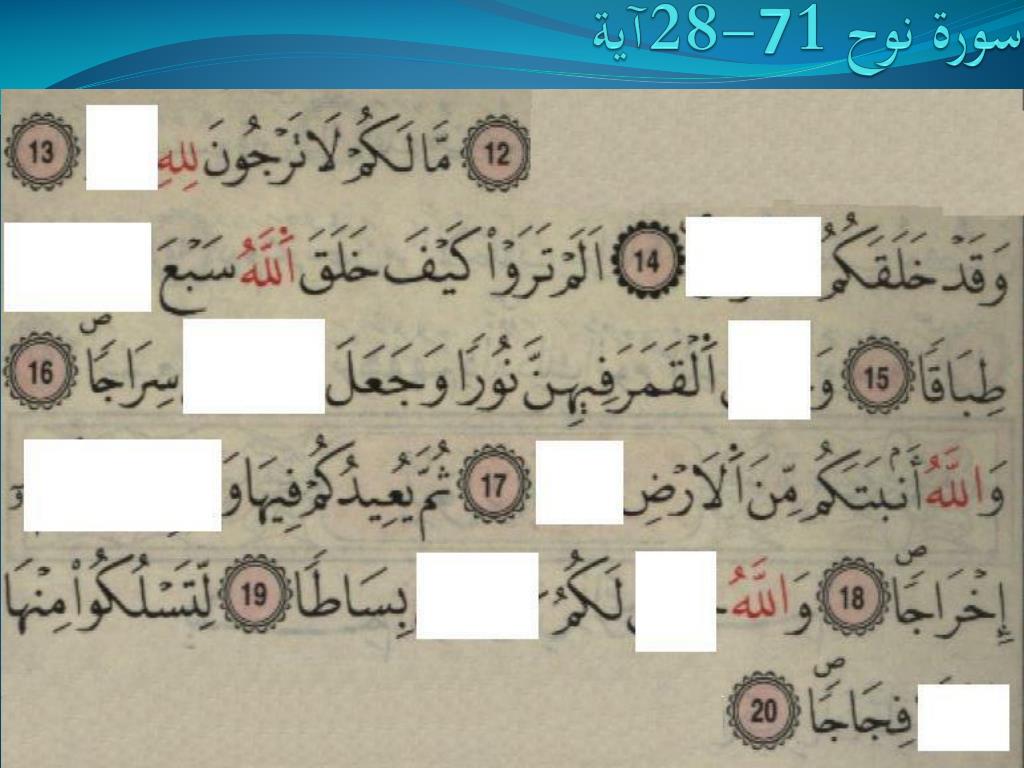 سورة نوح 71-28آية
12 مَّا لَكُمْ لَا تَرْجُونَ لِلهِ 13
وَقَدْ خَلَقَكُمُ 14 اَلَمْ تَرَوْاْ كَيْفَ خَلَقَ اَللَّهُ سَبْعَ
طِبَاقًا 15 وَ اَلْقَمَرَ فِيهِنَّ نُورًا وَجَعَلَ سِرَاجًا 16
وَاللَّهُ أَنۢبَتَكُم مِّنَ اَلَارْضِ 17 ثُمَّ يُعِيدُكُمْ فِيهَا وَ
إِخْرَاجًا 18 وَاللَّهُ لَكُمُ بِسَاطًا 19 لِّتَسْلُكُواْ مِنْهَا
فِجَاجًا 20